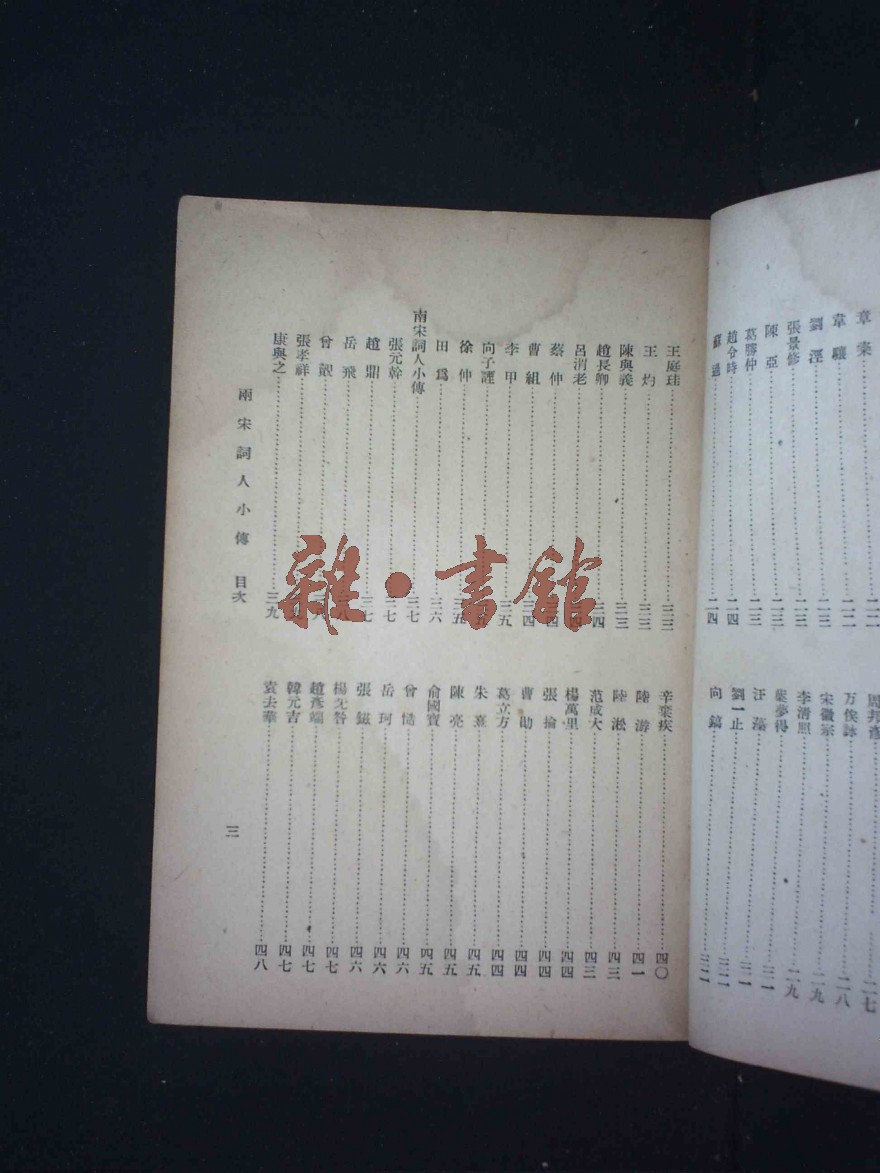 章楶
韋驤……二二
劉涇……二三
張景修……二三
陳亞……二三
葛勝仲……二三
趙令畤……二四
蘇過……二四
周邦彥……二七
万俟詠……二八
宋徽宗……二九
李清照……二九
葉夢得
汪藻……三一
劉一止……三一
向鎬……三二
王庭珪……三三
王灼……三三
陳與義……三三
趙長卿……三四
呂渭老……三四
蔡伸……三四
曹組……三四
李甲……三五
向子諲……三五
徐伸……三五
田爲……三六
南宋詞人小傳……三七
張元幹……三七
趙鼎……三七
岳飛
曾覿
張孝祥
康與之……三九
辛棄疾……四〇
陸游……四一
陸淞……四三
范成大……四三
楊萬里……四四
張掄……四四
曹勛……四四
葛立方……四四
朱熹……四五
陳亮……四五
俞國寶……四五
曾慥……四六
岳珂……四六
張鎡……四六
楊无咎……四七
趙彥端……四七
韓元吉……四七
袁去華……四八
兩宋詞人小傳 目次
三
雜·書館